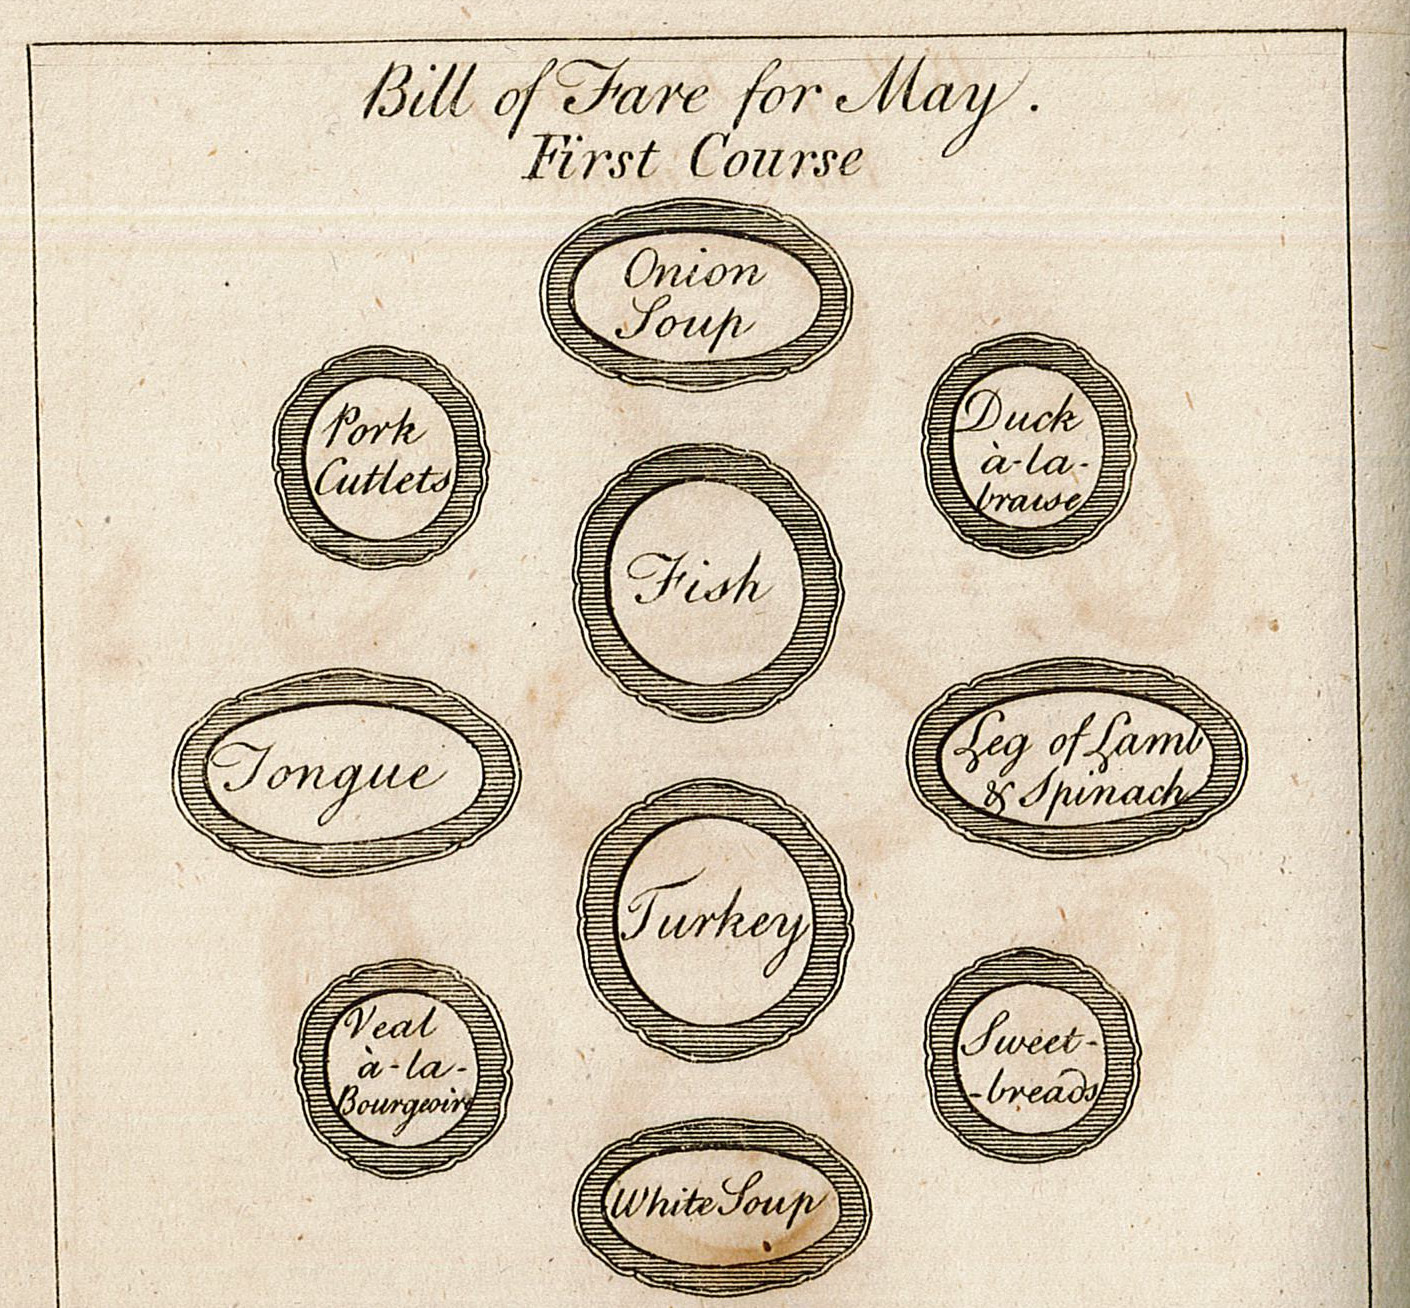 Bill of Fare for May.
First Course
Onion
Soup
Pork
Cutlets
Duck
à-la-
braise
Fish
Tongue
Leg of Lamb
& Spinach
Turkey
Veal
à-la-
Sweet-
-breads
White Soup